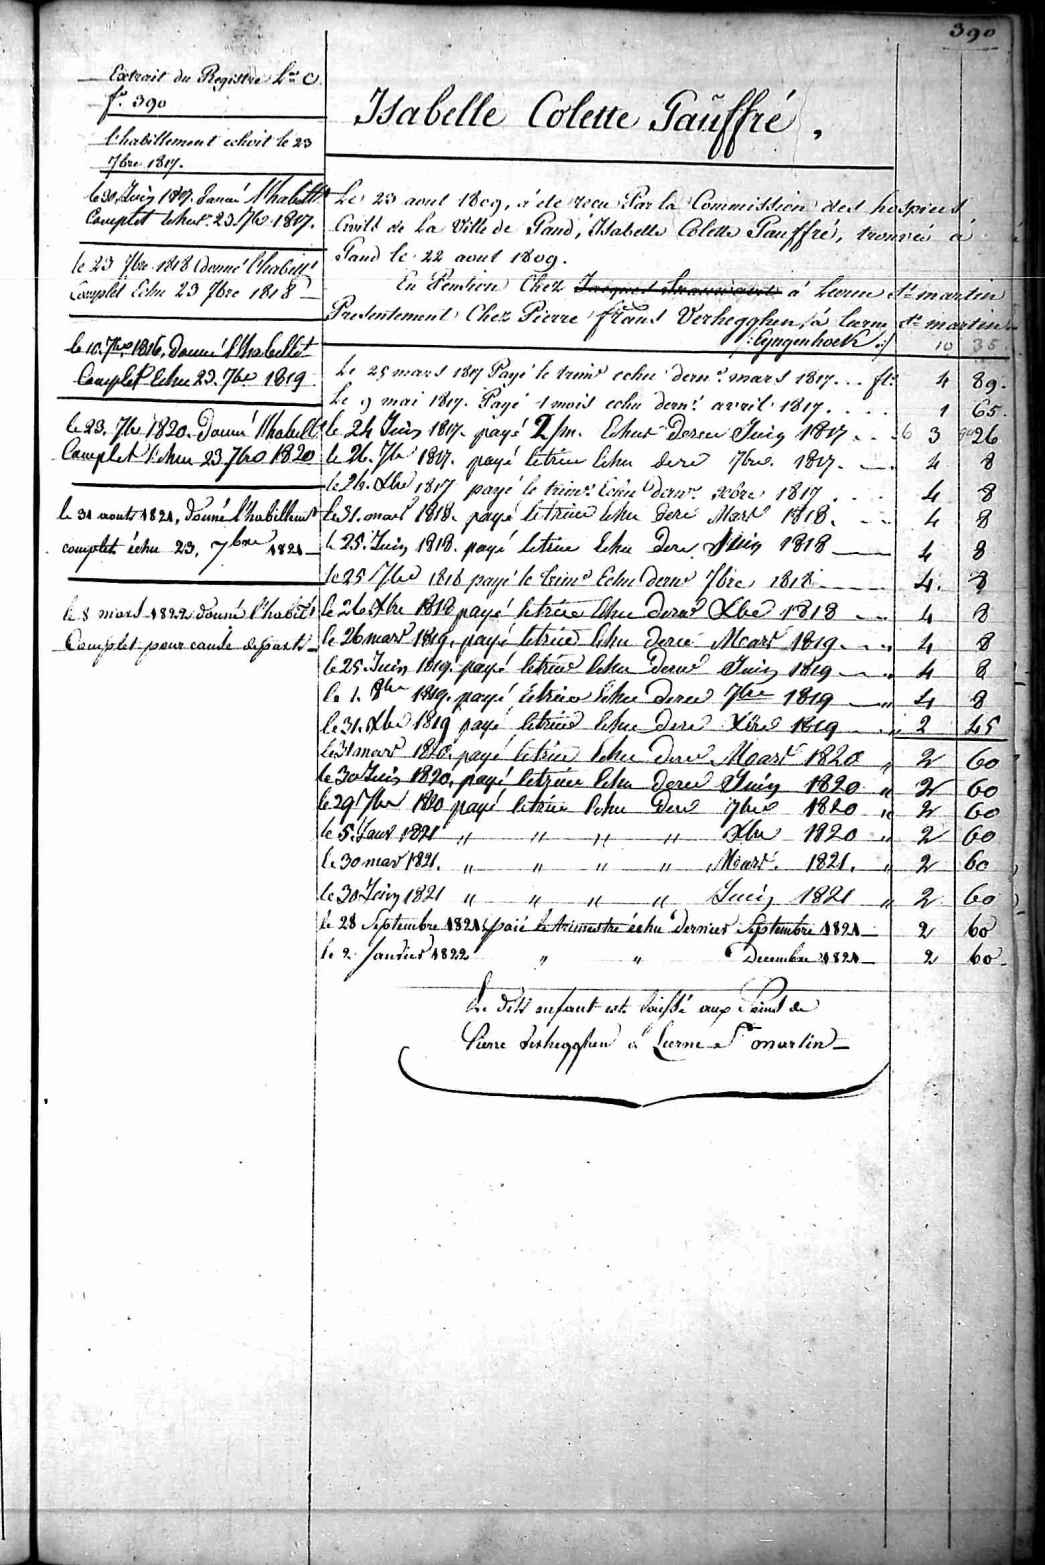 390
Extrait du Registre Lra C.
f. 390
l'habillement echoit le 23
7bre 1817.
le 30 Juin 1817. Donné l'habillt
Complet echus. 23. 7bre 1817.
le 23 7bre 1818 donné l'habillt
Complet Echu 23 7bre 1818
le 10. 7bre 1816, Donné l'habillt
Complet Echu 23. 7bre 1819
le 23. 7bre 1820. Donné l'habillt
Complet Echu 23 7bre 1820
le 31 aouts 1821, donné l'habillemt
complet échu 23, 7bre 1821
le 8 mars 1822 donné l'habillt
Complet pour cause depart
Isabelle Colette Gauffré,
Le 23 aout 1809, a été recu Par la Commission des hospices
Civils de La Ville de Gand, Isabelle Colette Gauffré, trouvée à
Gand le 22 aout 1809.
En Pention Chez à Leerne St martin
Presentement Chez Pierre frans Verhegghen, à Leerne St martin
/: Gyngenhoek :/ 10 35
Le 25 mars 1817 Payé le trimr echu dernr mars 1817... fl: 4 89.
Le 9 mai 1817. Payé 1 mois echu dernr avril 1817. . . . . 1 65.
le 24 Juin 1817. payé 2/m. Echus Derer Juin 1817 . . 6 3 26
le 26. 7bre 1817. payé le trire Echu dere 7bre. 1817. 4 8
le 24. Xbre 1817 payé le trimr Echu dernr xbre 1817 . . . . 4 8
le 31. mars 1818. payé le trire Echu Dere Mars 1818. 4 8
le 25. Juin 1818. payé le trire Echu Dere Juin 1818 4 8
le 25 7bre 1818 payé le trimr Echu dernr 7bre 1818 4. 8
le 26 Xbre 1818 payé le trire Echu dernr Xbre 1818 4 8
le 26 mars 1819, payé le trire Echu derer Mars 1819. 4 8
le 25. Juin 1819. payé le trire Echu Dernr Juin 1819 4 8
le 1. 8bre 1819. payé le trire Echu derer 7bre 1819 " 4 8
le 31. Xbre 1819 payé le trire Echu dere Xbre 1819 " 2 45
le 31 mars 1820. payé le trire Echu dere Mars 1820 " 2 60
le 30 Juin 1820. payé le trire Echu derer Juin 1820 " 2 60
le 29 7bre 1820 payé le trire Echu Dere 7bre 1820 " 2 60
le 5. Janr 1821 " " " " Xbre 1820 " 2 60
le 30 mars 1821. " " " " Mars. 1821. " 2 60
le 30 Juin 1821 " " " " Juin 1821 " 2 60
le 28 Septembre 1821 paié le trimestre échu dernier Septembre 1821 2 60
le 2 Janvier 1822 " " Decembre 1821 2 60
Le dit enfant est laissé aux soins de
Pierre Verhegghen à Leerne St martin